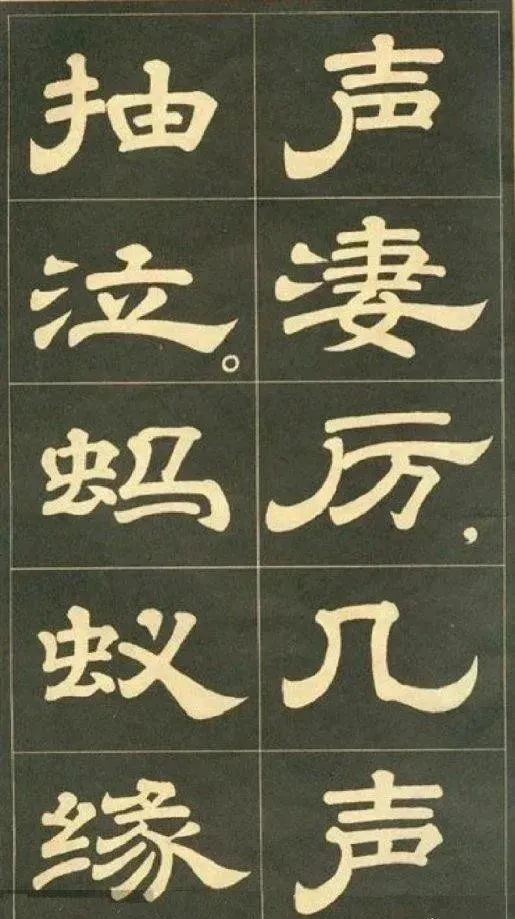 声凄厉，几声
抽泣。蚂蚁缘